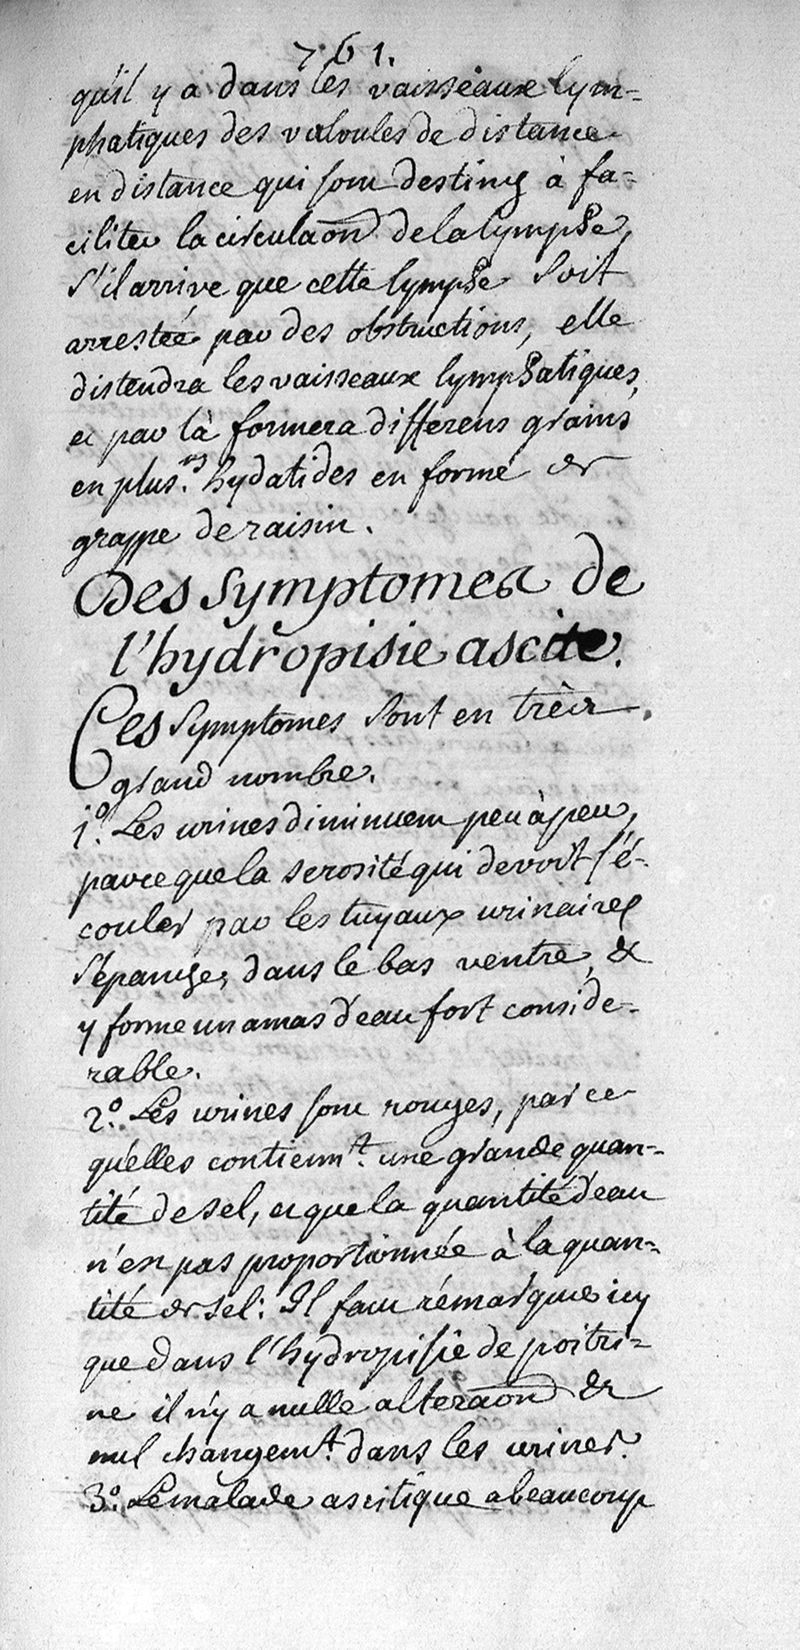 761.
qu'il y a dans les vaisseaux lym-
phatiques des valvules de distance
en distance qui sont destinés à fa-
ciliter la circulaon de la lymphe,
s'il arrive que cette lymphe soit
arrestée par des obstructions, elle
distendra les vaisseaux lymphatiques,
et par là formera differens grains
en plus.rs hydatides en forme de
grappe de raisin.
Des symptomes de
l'hydropisie ascite.
Ces symptomes sont en très
grand nombre.
1.o Les urines diminuent peu à peu,
parce que la serosité qui devoit s'é-
couler par les tuyaux urinaires
s'épanche, dans le bas ventre, &
y forme un amas d'eau fort conside-
rable.
2.o Les urines sont rouges, parce
qu'elles contienn.t une grande quan-
tité de sel, et que la quantité d'eau
n'est pas proportionnée à la quan-
tité de sel: Il faut rémarquer icy
que dans l'hydropisie de poitri-
ne il n'y a nulle alteraon de
nul changem.t dans les urines.
3.o Le malade ascitique a beaucoup